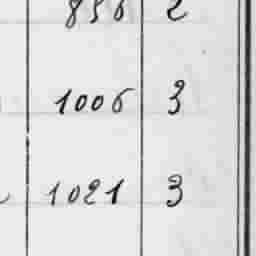 856 2
1006 3
1021 3